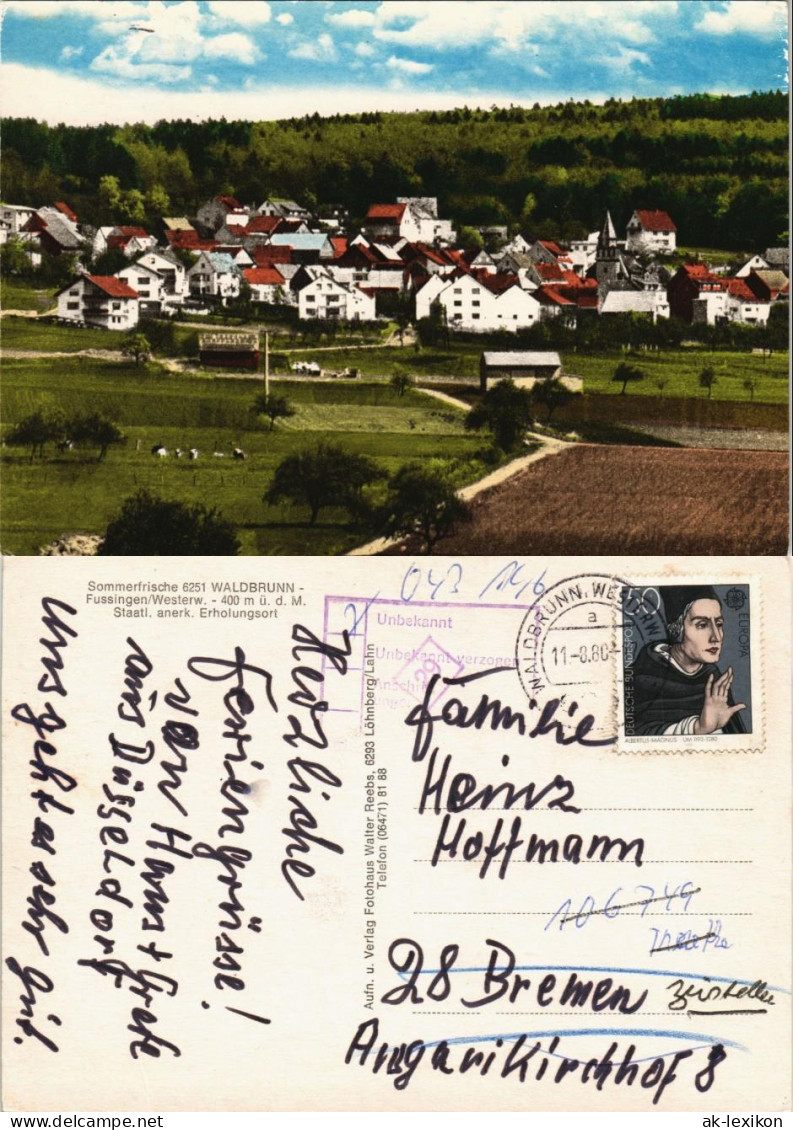 Sommerfrische 6251 WALDBRUNN -
Fussingen/Westerw. - 400 m ü. d. M.
Staatl. anerk. Erholungsort
Herzliche
Feriengrüsse!
von Hans + Grete
aus Düsseldorf
Uns geht es sehr gut.
Aufn. u. Verlag Fotohaus Walter Reebs, 6293 Löhnberg/Lahn
Telefon (06471) 81 88
Unbekannt
Unbekannt verzogen
29
WALDBRUNN, WESTERW
a
11.-8.80-
50
DEUTSCHE BUNDESPOST
EUROPA
ALBERTUS MAGNUS · UM 1193-1280
Familie
Heinz
Hoffmann
106749
28 Bremen
Zusteller
Angarikirchhof 8
ak-lexikon
www.delcampe.net